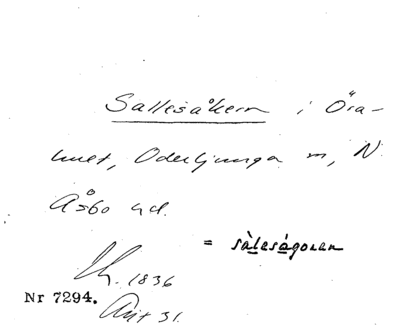 Sallesåkern i Öra-
huet, Oderljunga m, N.
Åsbo hd.
= sàlesågoren
Lh. 1836
Nr 7294.
Akt 31.